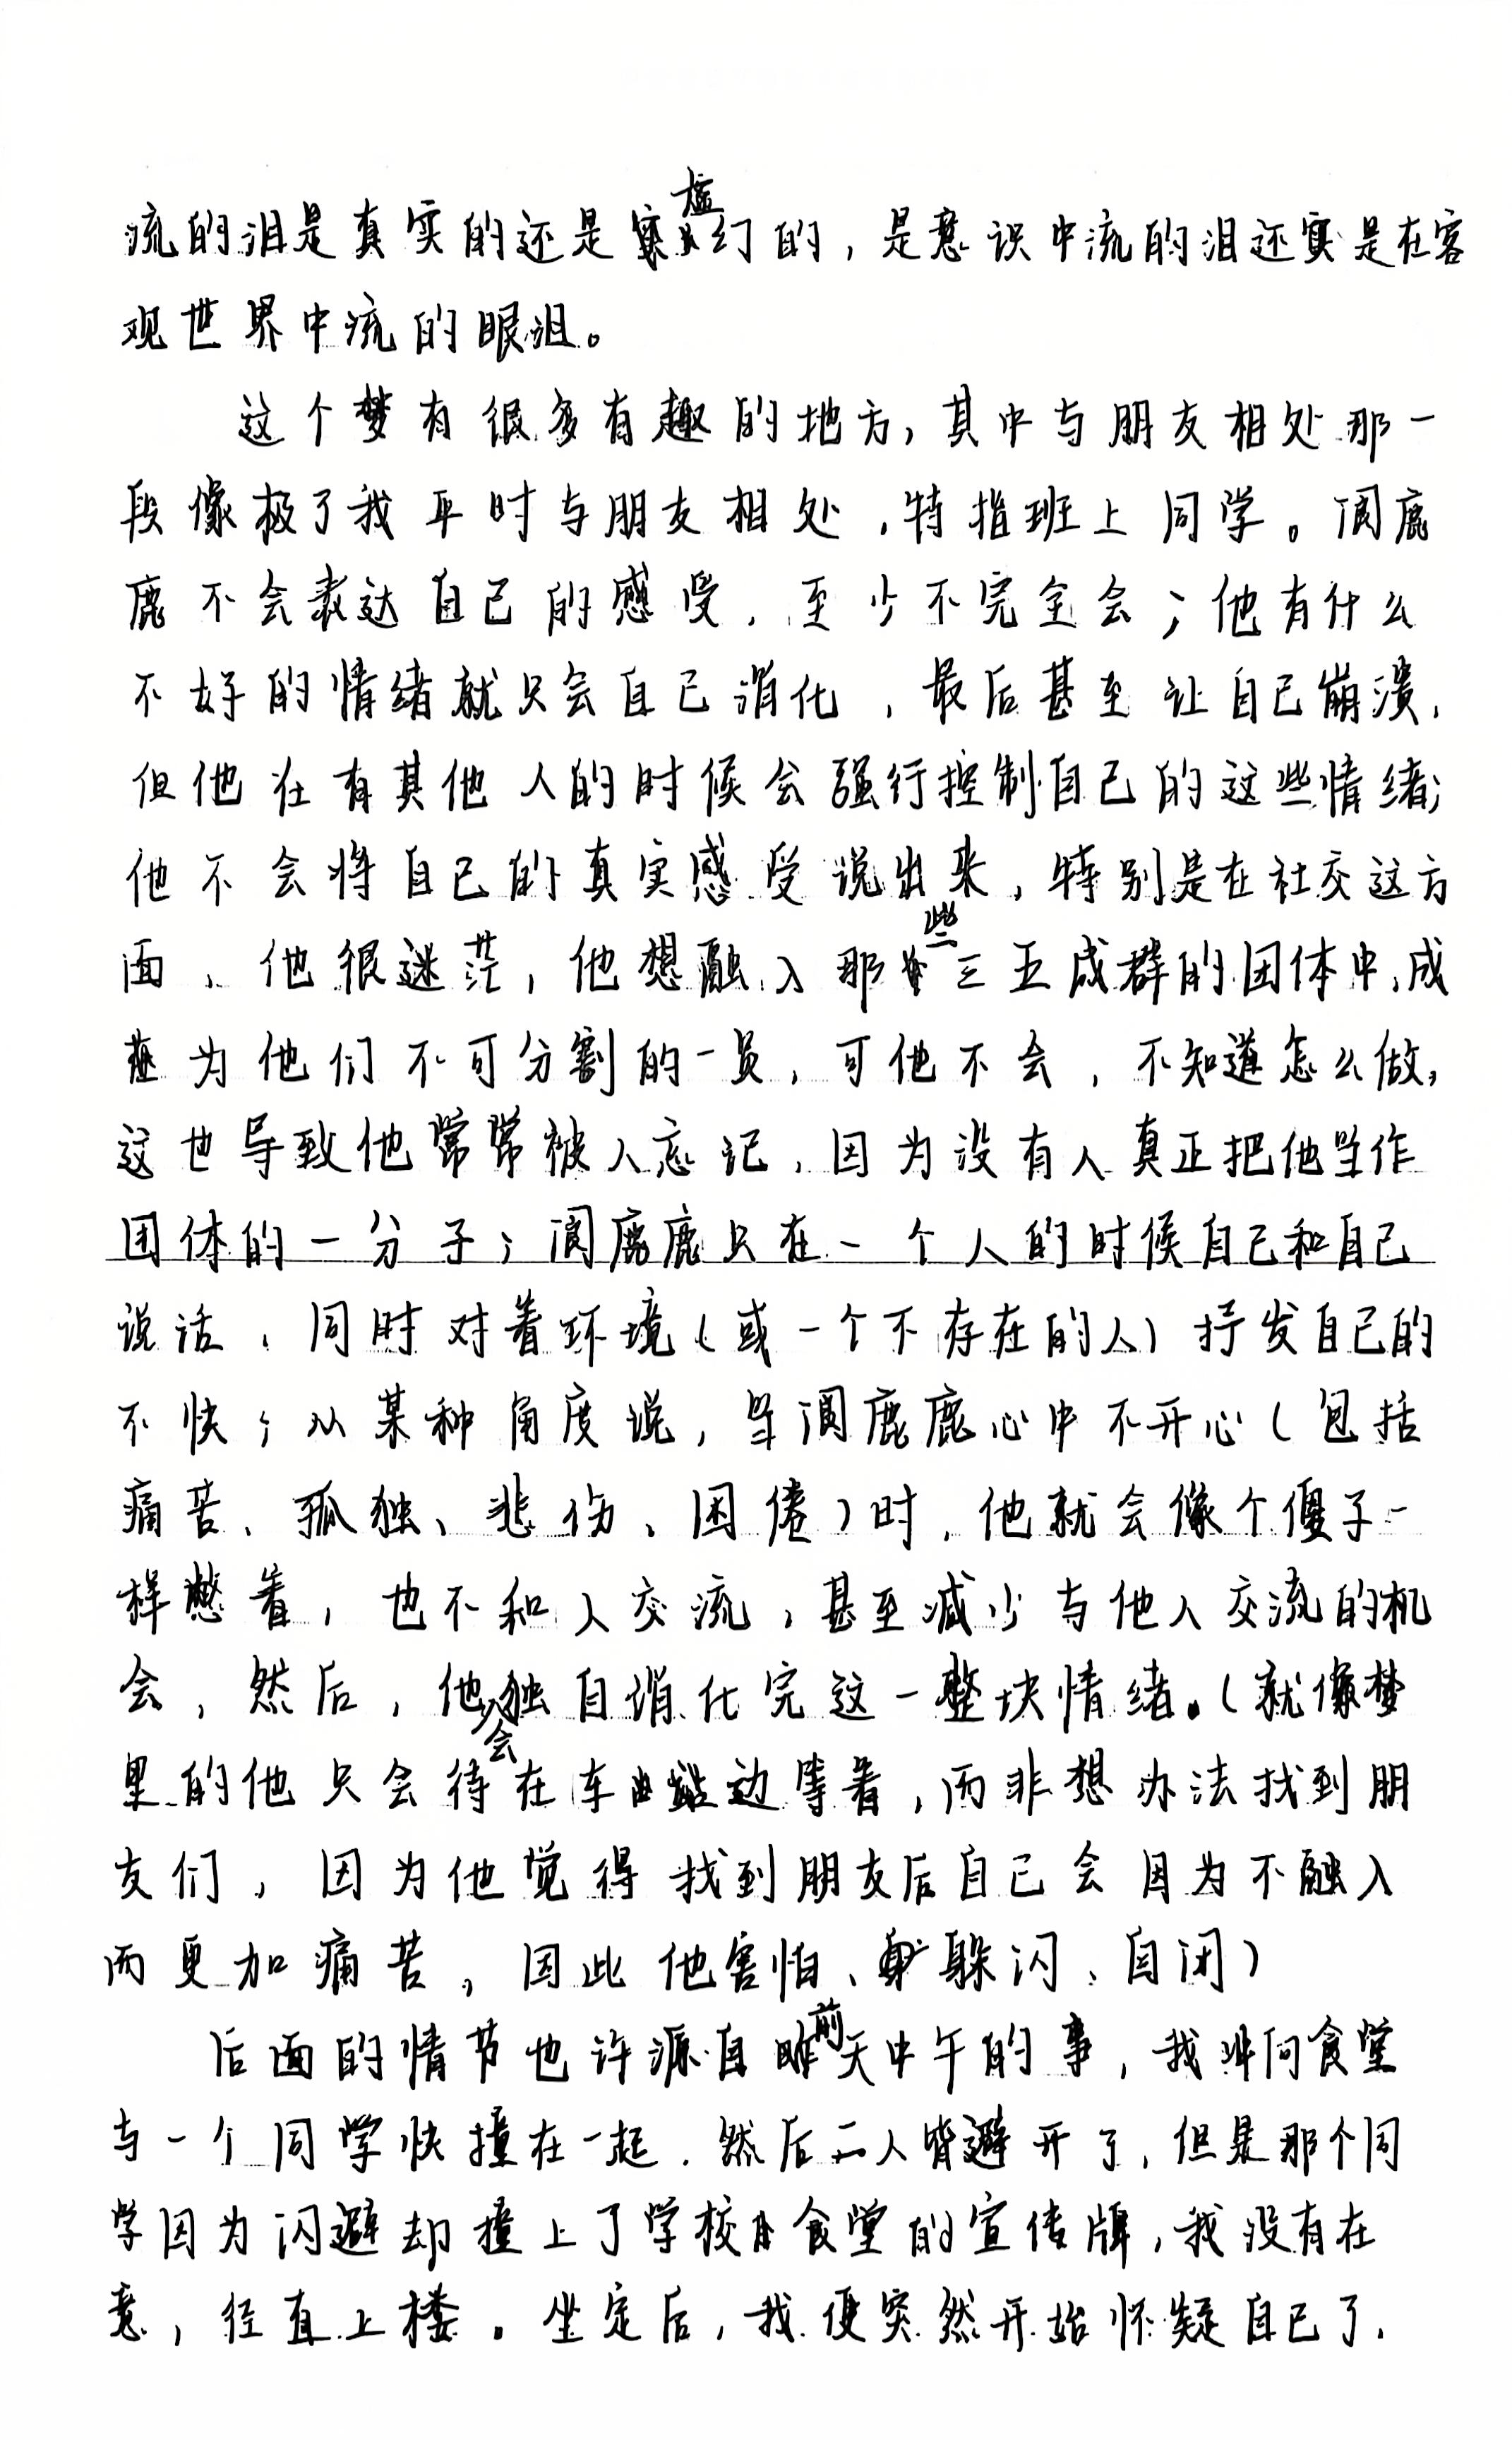 流的泪是真实的还是虚幻的，是意识中流的泪还是在客
观世界中流的眼泪。
这个梦有很多有趣的地方，其中与朋友相处那一
段像极了我平时与朋友相处，特指班上同学。阁鹿
鹿不会表达自己的感受，至少不完全会；他有什么
不好的情绪就只会自己消化，最后甚至让自己崩溃，
但他在有其他人的时候会强行控制自己的这些情绪；
他不会将自己的真实感受说出来，特别是在社交这方
面，他很迷茫，他想融入那些三五成群的团体中，成
为他们不可分割的一员，可他不会，不知道怎么做，
这也导致他常常被人忘记，因为没有人真正把他当作
团体的一分子；阁鹿鹿只在一个人的时候自己和自己
说话，同时对着环境（或一个不存在的人）抒发自己的
不快；从某种角度说，当阁鹿鹿心中不开心（包括
痛苦、孤独、悲伤、困倦）时，他就会像个傻子一
样憋着，也不和人交流，甚至减少与他人交流的机
会，然后，他会独自消化完这一整块情绪。（就像梦
里的他只会待在车站边等着，而非想办法找到朋
友们，因为他觉得找到朋友后自己会因为不融入
而更加痛苦，因此他害怕、躲闪、自闭）
后面的情节也许源自前天中午的事，我冲向食堂
与一个同学快撞在一起，然后二人皆避开了，但是那个同
学因为闪避却撞上了学校食堂的宣传牌，我没有在
意，径直上楼。坐定后，我便突然开始怀疑自己了，